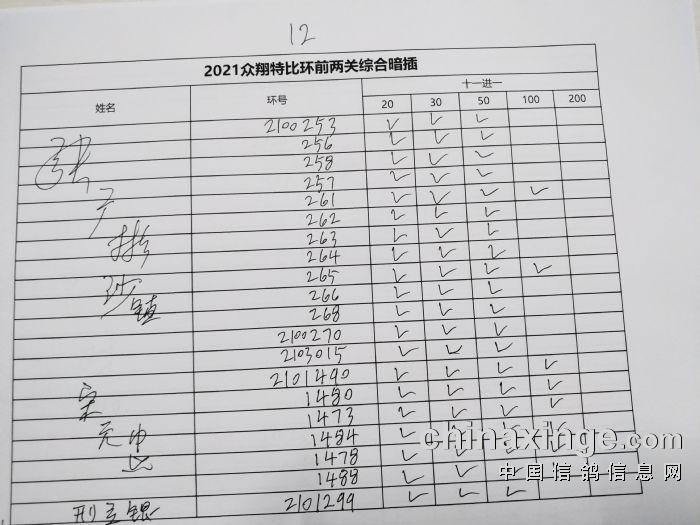 12
2021众翔特比环前两关综合暗插
姓名 环号 十一进一
20 30 50 100 200
2100253 ✓ ✓ ✓
256 ✓ ✓ ✓
258 ✓ ✓ ✓
257 ✓ ✓ ✓
261 ✓ ✓ ✓ ✓
262 ✓ ✓ ✓
263 ✓ ✓ ✓
264 ✓ ✓ ✓
265 ✓ ✓ ✓ ✓
266 ✓ ✓ ✓
268 ✓ ✓ ✓
2100270 ✓ ✓ ✓
2103015 ✓ ✓ ✓
2101490 ✓ ✓ ✓ ✓
1480 ✓ ✓ ✓ ✓
1473 ✓ ✓ ✓ ✓
1484 ✓ ✓
1478 ✓ ✓
1488 ✓ ✓
2101299 ✓ ✓ ✓
chinaxinge.com
中国信鸽信息网